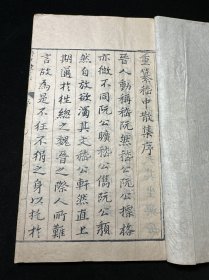 重纂嵇中散集序
晉人動稱嵇阮然嵇公阮公標格
亦微不同阮公曠嵇公儁阮公頹
然自放欲濁其文嵇公軒然直上
期適於性總之魏晉之際人所難
言故為是不狂不狷之身以托於